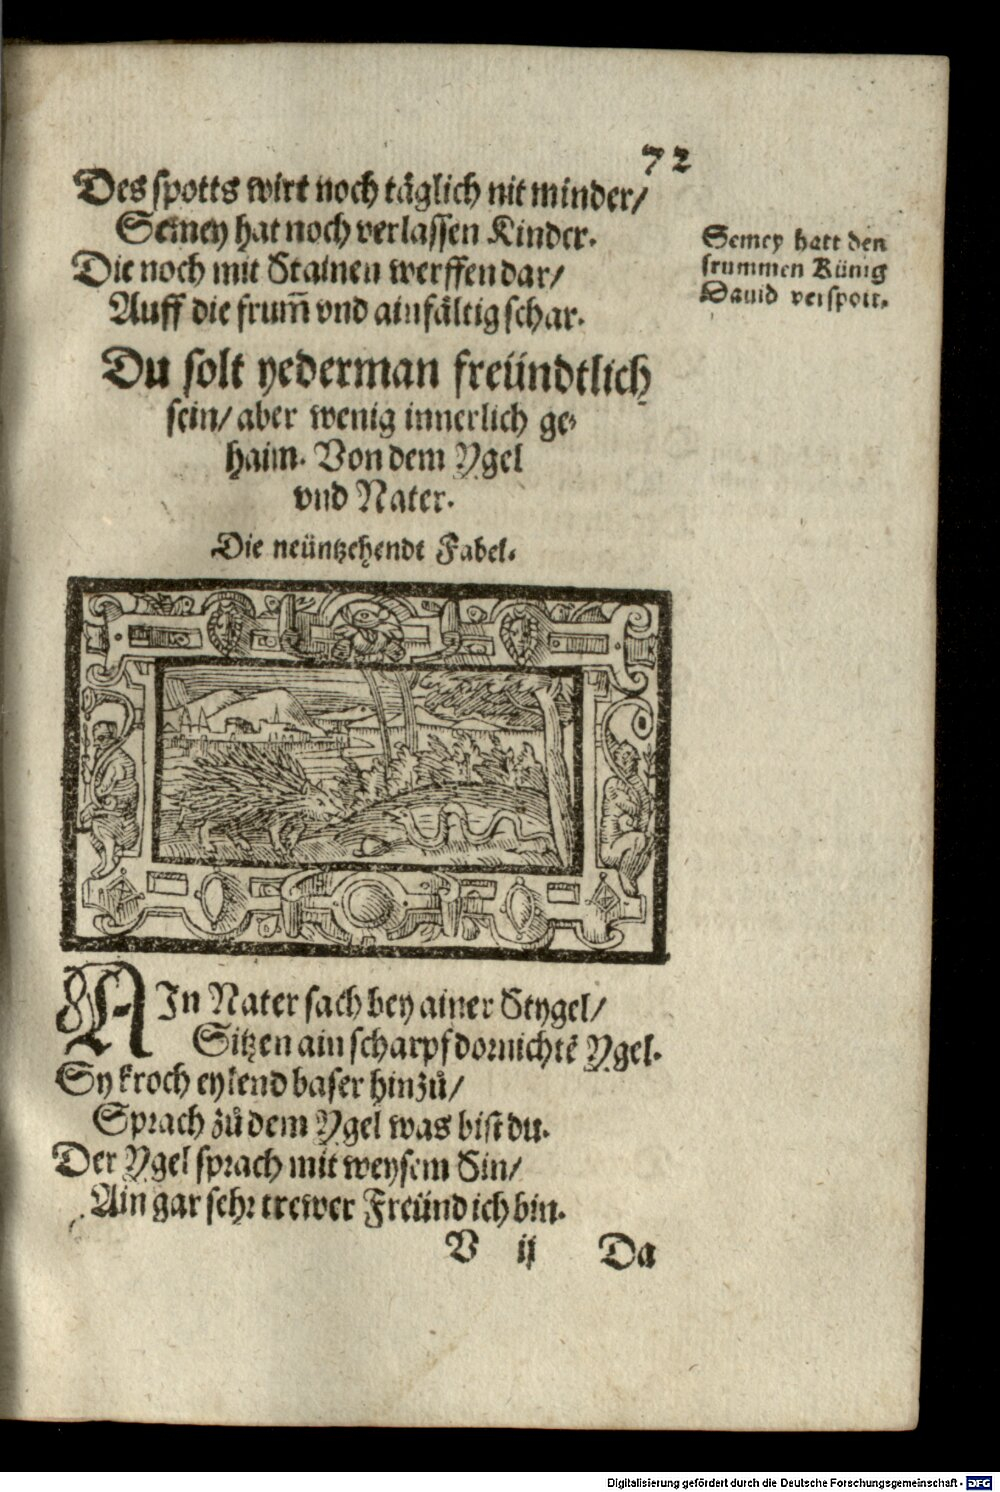 72
Des spotts wirt noch täglich nit minder/
Semey hat noch verlassen Kinder.
Die noch mit Stainen werffen dar/
Auff die frum̃ vnd ainfältig schar.
Semey hatt den
frummen Künig
Dauid verspott.
Du solt yederman freündtlich
sein/ aber wenig innerlich ge-
haim. Von dem Ygel
vnd Nater.
Die neüntzehendt Fabel.
AIn Nater sach bey ainer Stygel/
Sitzen ain scharpf dornichtē Ygel.
Sy kroch eylend baser hinzů/
Sprach zů dem Ygel was bist du.
Der Ygel sprach mit weysem Sin/
Ain gar sehr trewer Freünd ich bin.
V ij Da
Digitalisierung gefördert durch die Deutsche Forschungsgemeinschaft - DFG